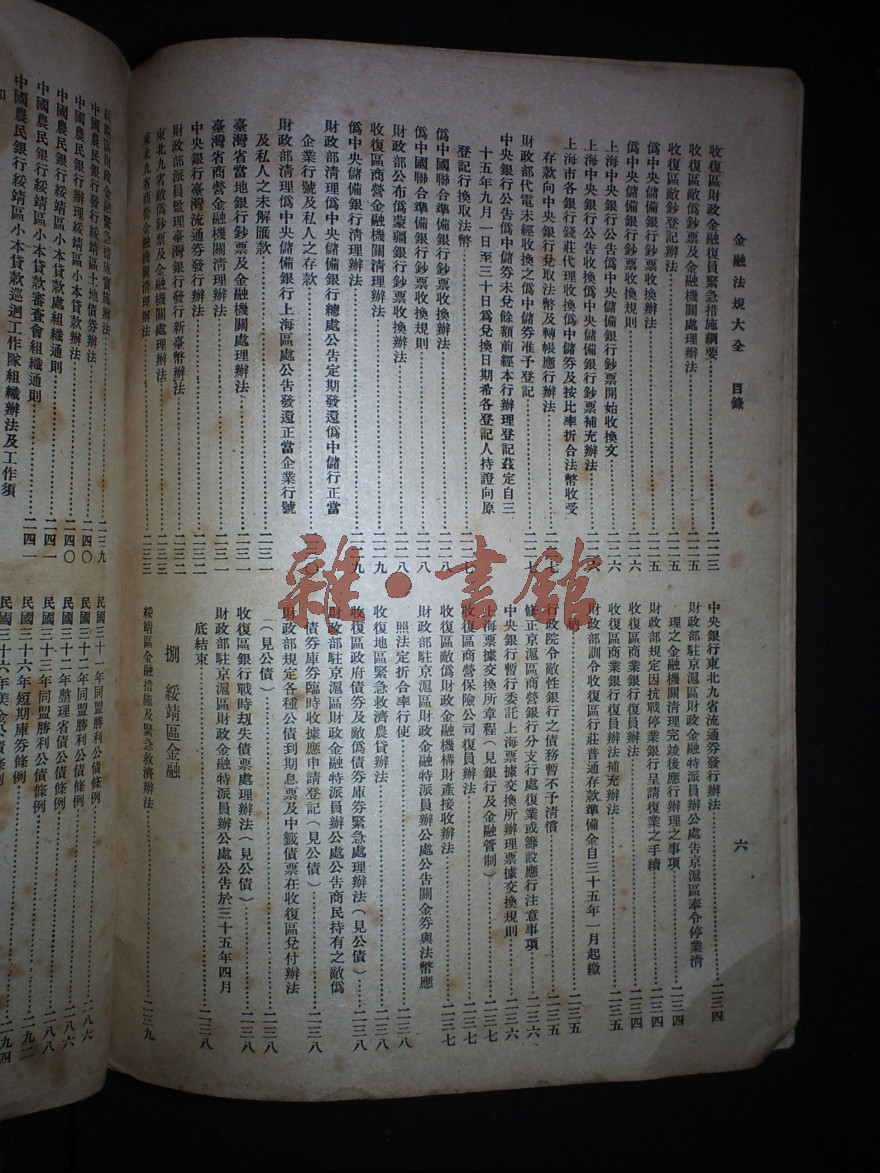 金融法規大全　目錄
六
收復區財政金融復員緊急措施綱要……二二三
收復區敵僞鈔票及金融機關處理辦法……二二五
收復區敵鈔登記辦法……二二五
僞中央儲備銀行鈔票收換辦法……二二五
僞中央儲備銀行鈔票收換規則……二二六
上海中央銀行公告僞中央儲備銀行鈔票開始收換文……二二六
上海中央銀行公告收換僞中央儲備銀行鈔票補充辦法……二二六
上海市各銀行錢莊代理收換僞中儲券及按比率折合法幣收受
存款向中央銀行兌取法幣及轉帳應行辦法……二二七
財政部代電未經收換之僞中儲券准予登記……二二七
中央銀行公告僞中儲券未兌餘額前經本行辦理登記茲定自三
十五年九月一日至三十日爲兌換日期希各登記人持證向原
登記行換取法幣……二二七
僞中國聯合準備銀行鈔票收換辦法……二二八
僞中國聯合準備銀行鈔票收換規則……二二八
財政部公布僞蒙疆銀行鈔票收換辦法……二二八
收復區商營金融機關清理辦法……二二九
僞中央儲備銀行清理辦法……二二九
財政部清理僞中央儲備銀行總處公告定期發還僞中儲行正當
企業行號及私人之存款……二三〇
財政部清理僞中央儲備銀行上海區處公告發還正當企業行號
及私人之未解匯款……二三一
臺灣省當地銀行鈔票及金融機關處理辦法……二三一
臺灣省商營金融機關清理辦法……二三一
中央銀行臺灣流通券發行辦法……二三二
財政部派員監理臺灣銀行發行新臺幣辦法……二三二
東北九省敵僞鈔票及金融機關處理辦法……二三三
東北九省商營金融機關清理辦法……二三三
中央銀行東北九省流通券發行辦法……二三四
財政部駐京滬區財政金融特派員辦公處告京滬區奉令停業清
理之金融機關清理完竣後應行辦理之事項……二三四
財政部規定因抗戰停業銀行呈請復業之手續……二三四
收復區商業銀行復員辦法……二三四
收復區商業銀行復員辦法補充辦法……二三五
財政部訓令收復區行莊普通存款準備金自三十五年一月起繳
納……二三五
行政院令敵性銀行之債務暫不予清償……二三五
修正京滬區商營銀行分支行處復業或籌設應行注意事項……二三六
中央銀行暫行委託上海票據交換所辦理票據交換規則……二三六
上海票據交換所章程（見銀行及金融管制）……二三七
收復區商營保險公司復員辦法……二三七
收復區敵僞財政金融機構財產接收辦法……二三七
財政部駐京滬區財政金融特派員辦公處公告關金券與法幣應
照法定折合率行使……二三八
收復地區緊急救濟農貸辦法……二三八
收復區政府債券及敵僞債券庫券緊急處理辦法（見公債）……二三八
財政部駐京滬區財政金融特派員辦公處公告商民持有之敵僞
債券庫券臨時收據應申請登記（見公債）……二三八
財政部規定各種公債到期息票及中籤債票在收復區兌付辦法
（見公債）……二三八
收復區銀行戰時刼失債票處理辦法（見公債）……二三八
財政部駐京滬區財政金融特派員辦公處公告於三十五年四月
底結束……二三八
捌　綏靖區金融
綏靖區金融措施及緊急救濟辦法……二三九
綏靖區財政金融緊急措施實施辦法……二三九
中國農民銀行發行綏靖區土地債券辦法……二四〇
中國農民銀行辦理綏靖區小本貸款辦法……二四〇
中國農民銀行綏靖區小本貸款處組織通則……二四一
中國農民銀行綏靖區小本貸款審查會組織通則……二四一
中國農民銀行綏靖區小本貸款巡迴工作隊組織辦法及工作須
民國三十一年同盟勝利公債條例……二八六
民國三十二年同盟勝利公債條例……二八七
民國三十二年整理省債公債條例……二八六
民國三十三年同盟勝利公債條例……二八八
民國三十六年短期庫券條例……二九二
民國三十六年美金公債條例……二九四
雜·書館